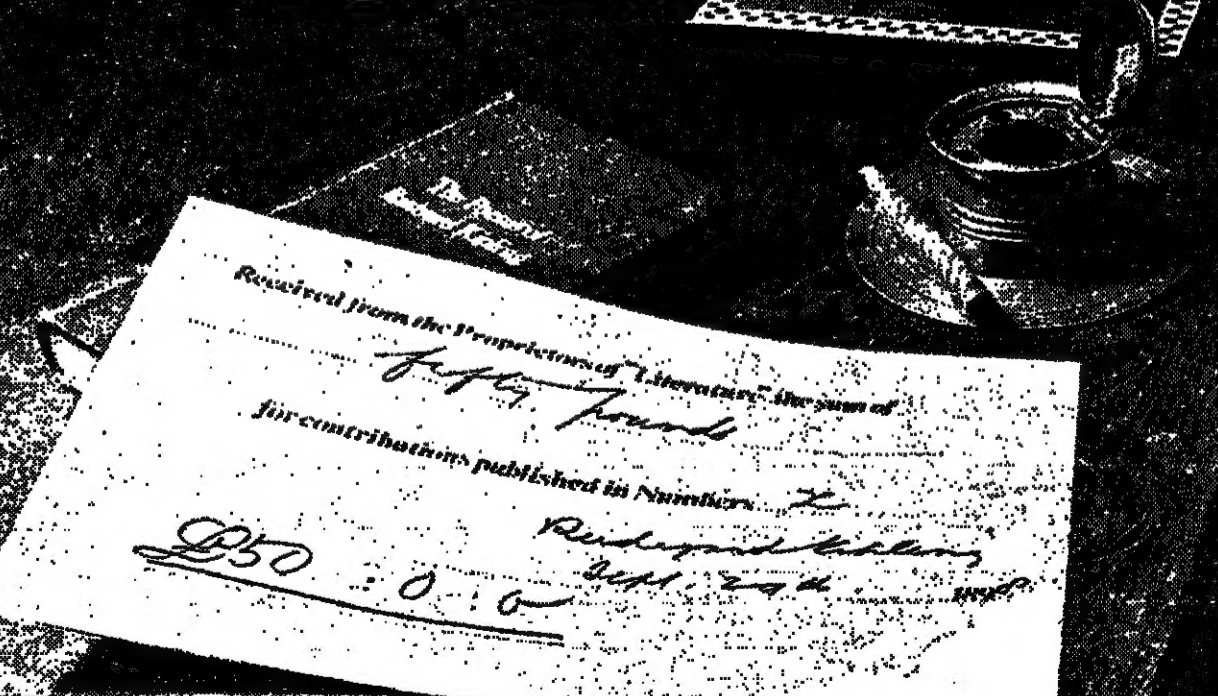 Received from the Proprietors of "Literature" the sum of
fifty pounds
for contributions published in Numbers
Rudyard Kipling
Sept. 29th 189
£50 : 0 : 0